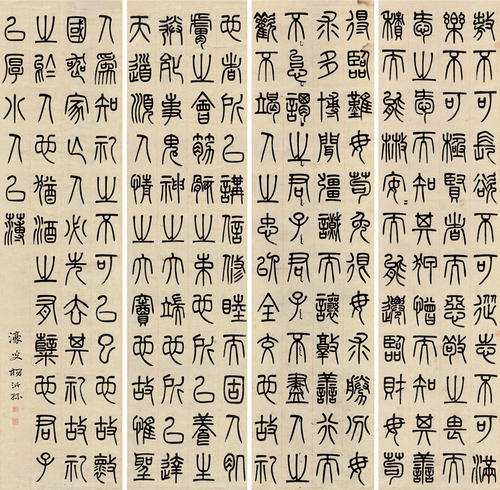 敖不可長欲不可從志不可滿
樂不可極賢者狎而敬之畏而
愛之愛而知其惡憎而知其善
積而能散安安而能遷臨財毋苟
得臨難毋苟免很毋求勝分毋
求多博聞彊識而讓敦善行而
不怠謂之君子君子不盡人之
歡不竭人之忠以全交也故礼
也者所以講信修睦而固人肌
膚之會筋骸之束也所以養生
送死事鬼神之大端也所以達
天道順人情之大竇也故惟聖
人為知礼之不可以已也故壞
國喪家亡人必先去其礼故礼
之於人也猶酒之有糵也君子
以厚小人以薄
濠叟楊沂孫